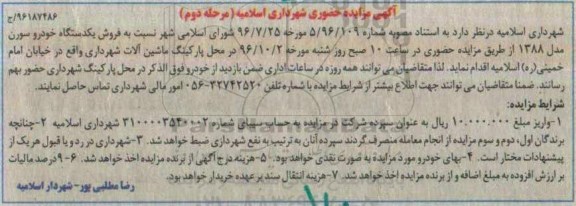 ۹۶۱۸۷۴۸۶/خ
آگهی مزایده حضوری شهرداری اسلامیه (مرحله دوم)
شهرداری اسلامیه درنظر دارد به استناد مصوبه شماره ۵/۹۶/۱۰۹ مورخه ۹۶/۷/۲۵ شورای اسلامی شهر نسبت به فروش یکدستگاه خودرو سورن
مدل ۱۳۸۸ از طریق مزایده حضوری در ساعت ۱۰ صبح روز شنبه مورخه ۹۶/۱۰/۲ در محل پارکینگ ماشین آلات شهرداری واقع در خیابان امام
خمینی(ره) اسلامیه اقدام نماید. لذا متقاضیان می توانند همه روزه در ساعات اداری ضمن بازدید از خودرو فوق الذکر در محل پارکینگ شهرداری حضور بهم
رسانند. ضمنا متقاضیان می توانند جهت اطلاع بیشتر از شرایط مزایده با شماره تلفن ۳۲۷۴۲۵۲۰-۰۵۶ امور مالی شهرداری تماس حاصل نمایند.
شرایط مزایده:
۱-واریز مبلغ ۱۰.۰۰۰.۰۰۰ ریال به عنوان سپرده شرکت در مزایده به حساب سیبای شماره ۳۱۰۰۰۰۳۵۴۰۰۰۲ شهرداری اسلامیه ۲-چنانچه
برندگان اول، دوم و سوم مزایده از انجام معامله منصرف گردند سپرده آنان به ترتیب به نفع شهرداری ضبط خواهد شد. ۳-شهرداری در رد و یا قبول هر یک از
پیشنهادات مختار است. ۴-بهای خودرو مورد مزایده به صورت نقدی خواهد بود. ۵-هزینه درج آگهی از برنده مزایده اخذ خواهد شد. ۶-۹درصد مالیات
بر ارزش افزوده به مبلغ اضافه و از برنده مزایده اخذ خواهد شد. ۷-هزینه انتقال سند بر عهده خریدار خواهد بود.
رضا مطلبی پور-شهردار اسلامیه